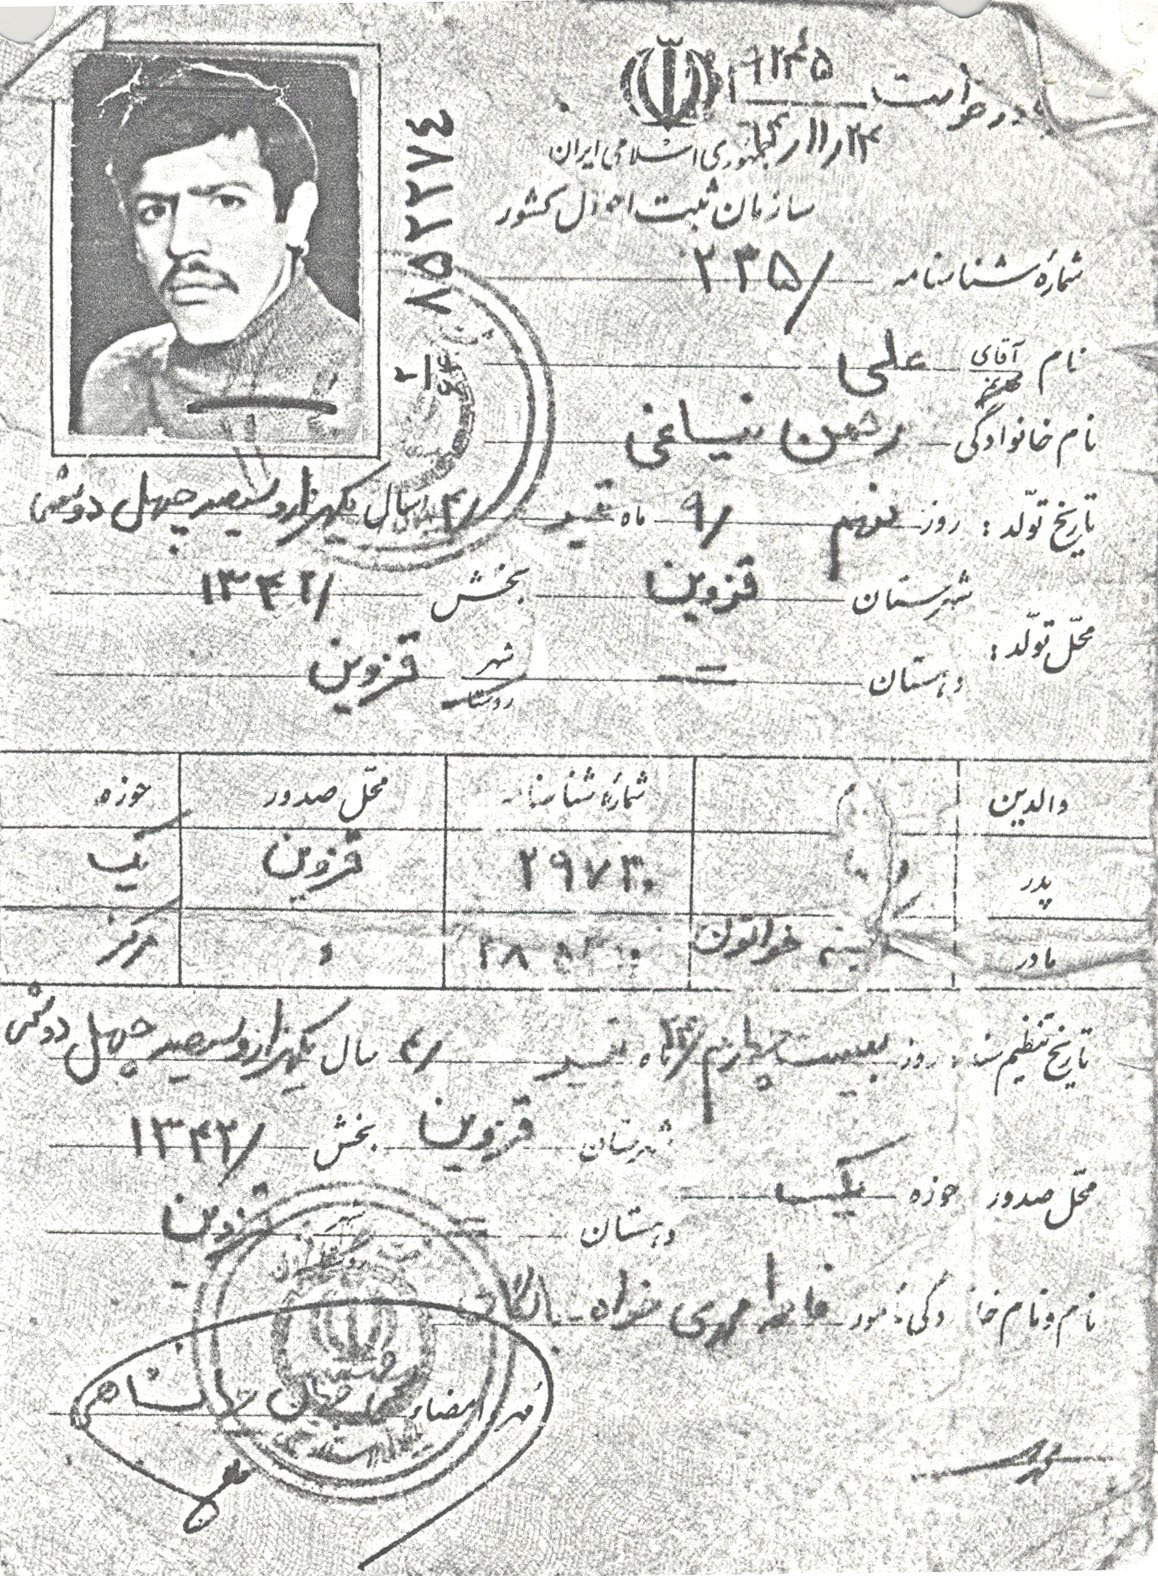 درخواست ۹۲۴۵
۲۴ر۱۱ر
جمهوری اسلامی ایران
سازمان ثبت احوال کشور
شمارهٔ شناسنامه ۲۳۵/
۸۵۲۲۷۴
نام آقای علی
نام خانوادگی
تاریخ تولّد : روز نهم ۹/ ماه تیر ۴/ سال یکهزار و سیصد چهل دو شمسی
محلّ تولّد : شهرستان قزوین بخش ۱۳۴۲/
دهستان — شهر روستا قزوین
والدین شمارهٔ شناسنامه محلّ صدور حوزه
پدر ۲۹۷۳۰ قزوین یک
مادر خواتون " مرکز
تاریخ تنظیم سند : روز بیست چهارم ۲۴/ ماه تیر ۴/ سال یکهزار و سیصد چهل دو شمسی
محلّ صدور حوزه یک شهرستان قزوین بخش ۱۳۴۲/
دهستان — شهر قزوین
نام و نام خانوادگی مأمور مهدی خواه
مهر و امضاء